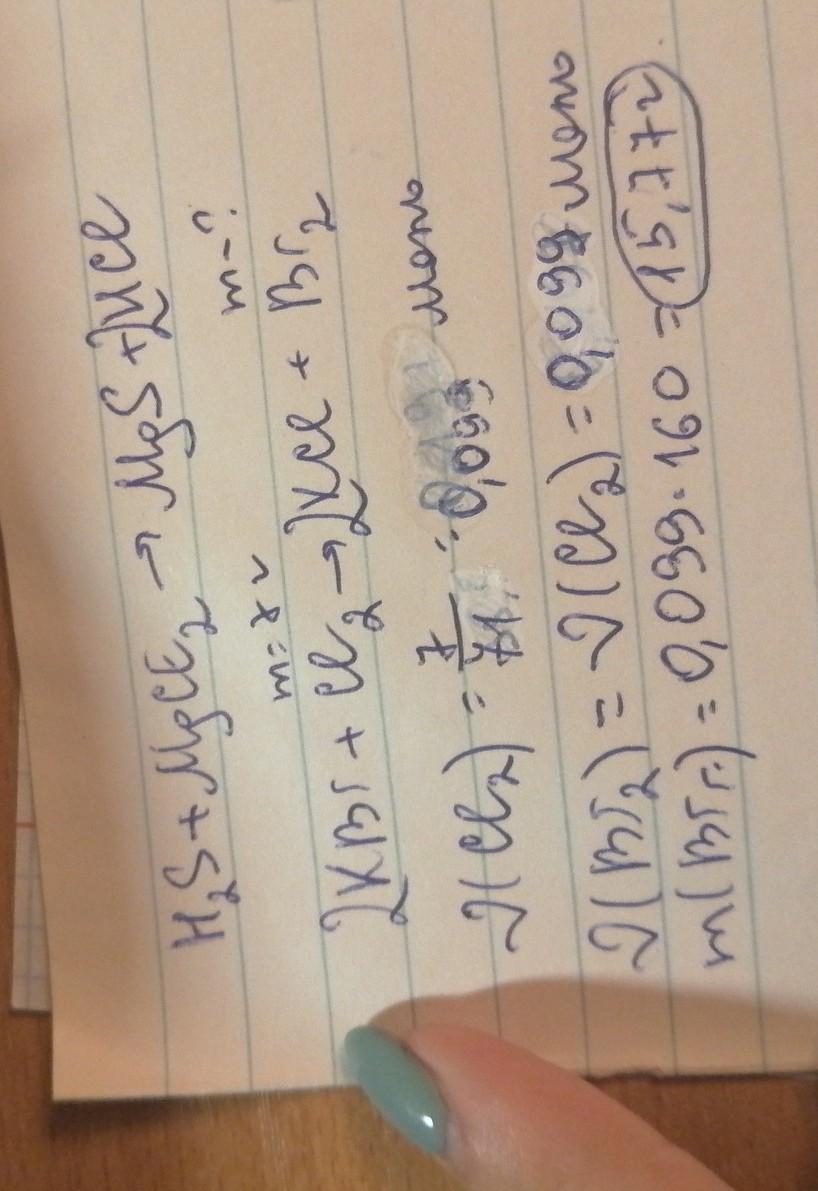 H₂S + MgCl₂ → MgS + 2HCl
m=7г m-?
2KBr + Cl₂ → 2KCl + Br₂
ν(Cl₂) = 7/71 = 0,099 моль
ν(Br₂) = ν(Cl₂) = 0,099 моль
m(Br₂) = 0,099·160 = 15,77г